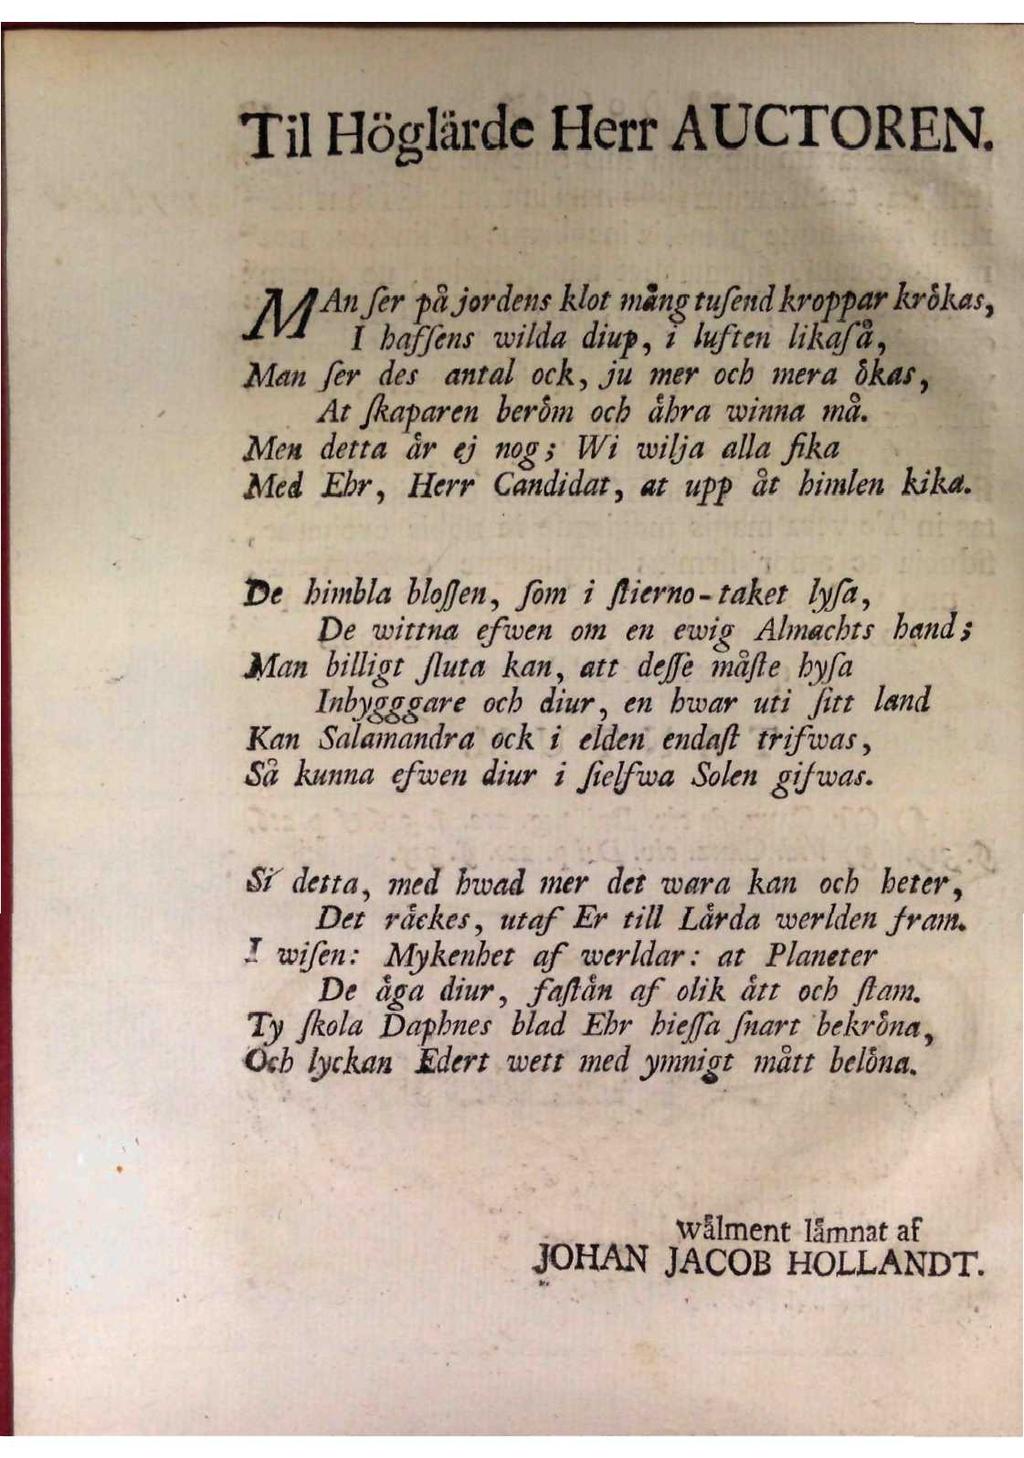 Til Höglärde Herr AUCTOREN.
MAn ſer på jordens klot mång tuſend kroppar krökas,
I haffſens wilda diup, i luften likaſå,
Man ſer des antal ock, ju mer och mera ökas,
At ſkaparen beröm och ähra winna må.
Men detta är ej nog; Wi wilja alla fika
Med Ehr, Herr Candidat, at upp åt himlen kika.
De himbla bloſſen, ſom i ſtierno-taket lyſa,
De wittna efwen om en ewig Almachts hand;
Man billigt ſluta kan, att deſſe måſte hyſa
Inbygggare och diur, en hwar uti ſitt land
Kan Salamandra ock i elden endaſt trifwas,
Så kunna efwen diur i ſielfwa Solen gifwas.
Si detta, med hwad mer det wara kan och heter,
Det räckes, utaf Er till Lärda werlden fram.
I wiſen: Mykenhet af werldar: at Planeter
De äga diur, faſtän af olik ätt och ſtam.
Ty ſkola Daphnes blad Ehr hieſſa ſnart bekröna,
Och lyckan Edert wett med ymnigt mått belöna.
wälment lämnat af
JOHAN JACOB HOLLANDT.